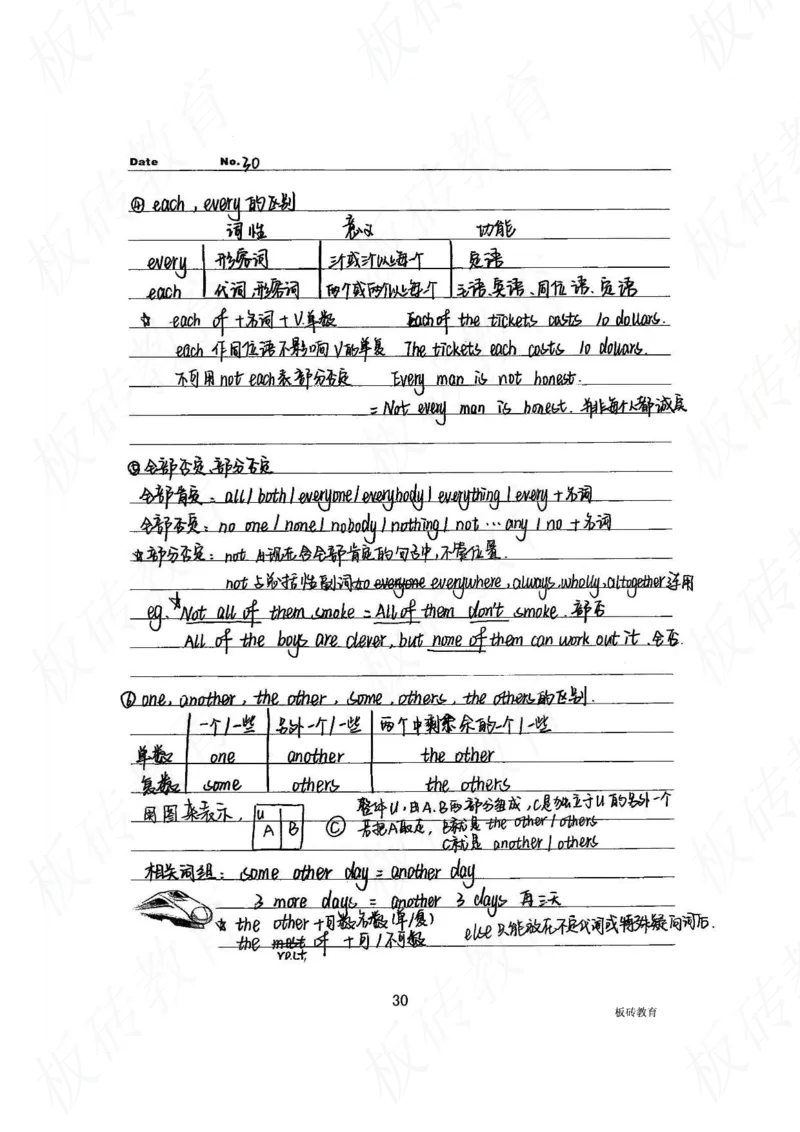 Date No.30
④ each, every的区别
词性 意义 功能
every 形容词 三个或三个以上每个 定语
each 代词.形容词 两个或两个以上每个 主语、宾语、同位语、定语
☆ each of + 名词 + V.单数 Each of the tickets costs 10 dollars.
each 作同位语不影响V的单复 The tickets each costs 10 dollars.
不可用not each表部分否定 Every man is not honest.
= Not every man is honest. 并非每个人都诚实
⑤ 全部否定、部分否定
全部肯定: all / both / everyone / everybody / everything / every + 名词
全部否定: no one / none / nobody / nothing / not … any / no + 名词
☆部分否定: not 出现在含全部肯定的句子中,不管位置.
not 与总括性副词 everywhere, always, wholly, altogether 连用
eg. ☆Not all of them smoke = All of them don't smoke. 部否
All of the boys are clever, but none of them can work out it. 全否.
⑥ one, another, the other, some, others, the others的区别.
一个/一些 另外一个/一些 两个中剩余的一个/一些
单数 one another the other
复数 some others the others
用图来表示, U A B Ⓒ 整体U,由A.B两部分组成,C是独立于U的另外一个
若把A取走, B就是the other / others
C就是 another / others
相关词组: some other day = another day
3 more days = another 3 days 再三天
☆ the other + 可数名数(单/复) else只能放在不定代词或特殊疑问词后.
the rest of + 可/不可数
30
板砖教育